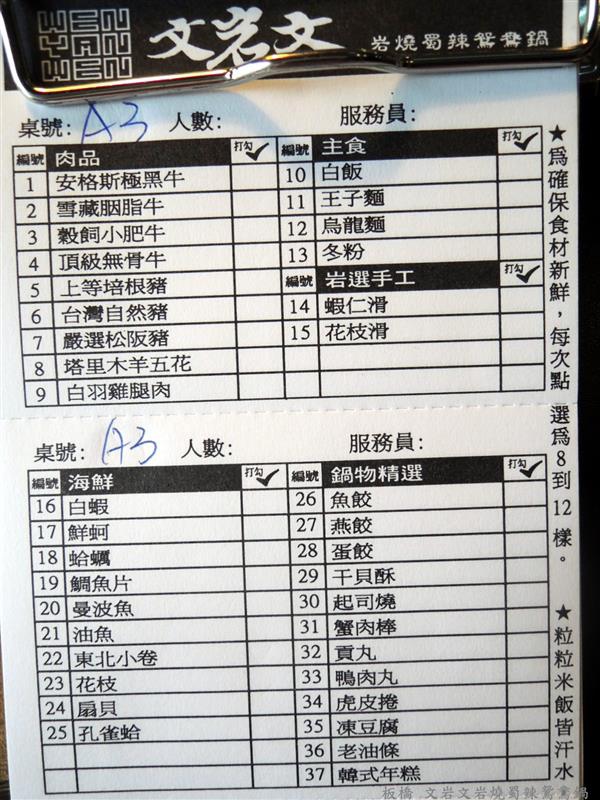 文岩文
岩燒蜀辣鴛鴦鍋
桌號: A3 人數: 服務員:
編號 肉品 打勾
1 安格斯極黑牛
2 雪藏胭脂牛
3 穀飼小肥牛
4 頂級無骨牛
5 上等培根豬
6 台灣自然豬
7 嚴選松阪豬
8 塔里木羊五花
9 白羽雞腿肉
編號 主食 打勾
10 白飯
11 王子麵
12 烏龍麵
13 冬粉
編號 岩選手工 打勾
14 蝦仁滑
15 花枝滑
桌號: A3 人數: 服務員:
編號 海鮮 打勾
16 白蝦
17 鮮蚵
18 蛤蠣
19 鯛魚片
20 曼波魚
21 油魚
22 東北小卷
23 花枝
24 扇貝
25 孔雀蛤
編號 鍋物精選 打勾
26 魚餃
27 燕餃
28 蛋餃
29 干貝酥
30 起司燒
31 蟹肉棒
32 貢丸
33 鴨肉丸
34 虎皮捲
35 凍豆腐
36 老油條
37 韓式年糕
★為確保食材新鮮，每次點選為8到12樣。 ★粒粒米飯皆汗水
板橋 文岩文岩燒蜀辣鴛鴦鍋